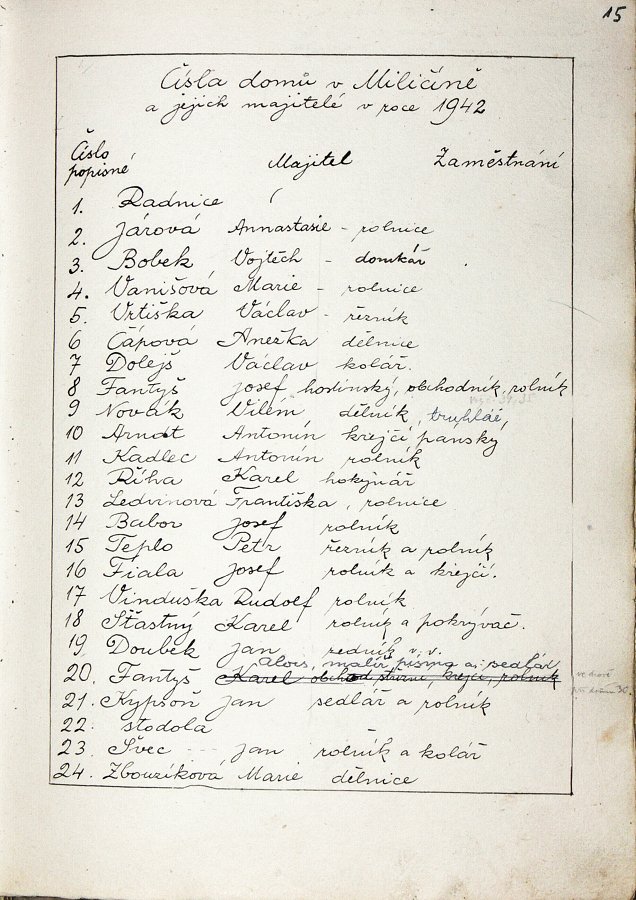 15
Čísla domů v Miličíně
a jejich majitelé v roce 1942
Číslo
popisné Majitel Zaměstnání
1. Radnice
2. Járová Annastasie - rolnice
3. Bobek Vojtěch - domkář
4. Vanišová Marie - rolnice
5. Vrtiška Václav - řezník
6 Čápová Anežka dělnice
7 Dolejš Václav kolář.
8 Fantyš Josef hostinský, obchodník, rolník
9 Novák Vilém dělník, truhlář,
10 Arndt Antonín krejčí pánský
11 Kadlec Antonín rolník
12 Říha Karel hokynář
13 Ledvinová Františka, rolnice
14 Babor Josef rolník
15 Teplo Petr řezník a rolník
16 Fiala Josef rolník a krejčí.
17 Vinduška Rudolf rolník
18 Šťastný Karel rolník a pokrývač.
19 Doubek Jan zedník v. v.
Alois, malíř písma a sedlář
20. Fantyš Karel obchod střižní, krejčí, rolník
21. Kypson Jan sedlář a rolník
22. stodola -
23. Švec Jan rolník a kolář
24. Zbouzíková Marie dělnice